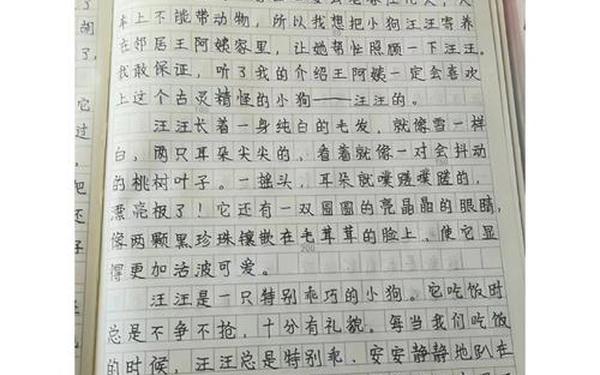 车上不能带动物，所以我想把小狗汪汪寄养
在邻居王阿姨家里，让她帮忙照顾一下汪汪。
我敢保证，听了我的介绍王阿姨一定会喜欢
上这个古灵精怪的小狗——汪汪的。
汪汪长着一身纯白的毛发，就像雪一样
白，两只耳朵尖尖的，看着就像一对会抖动
的桃树叶子。一摇头，耳朵就噗蹉噗蹉的，
漂亮极了！它还有一双圆圆的亮晶晶的眼睛，
像两颗黑珍珠镶嵌在毛茸茸的脸上，使它显
得更加活波可爱。
200
汪汪是一只特别乖巧的小狗。它吃饭时
总是不争不抢，十分有礼貌。每当我们吃饭
的时候，汪汪总是特别乖、安安静静地趴在